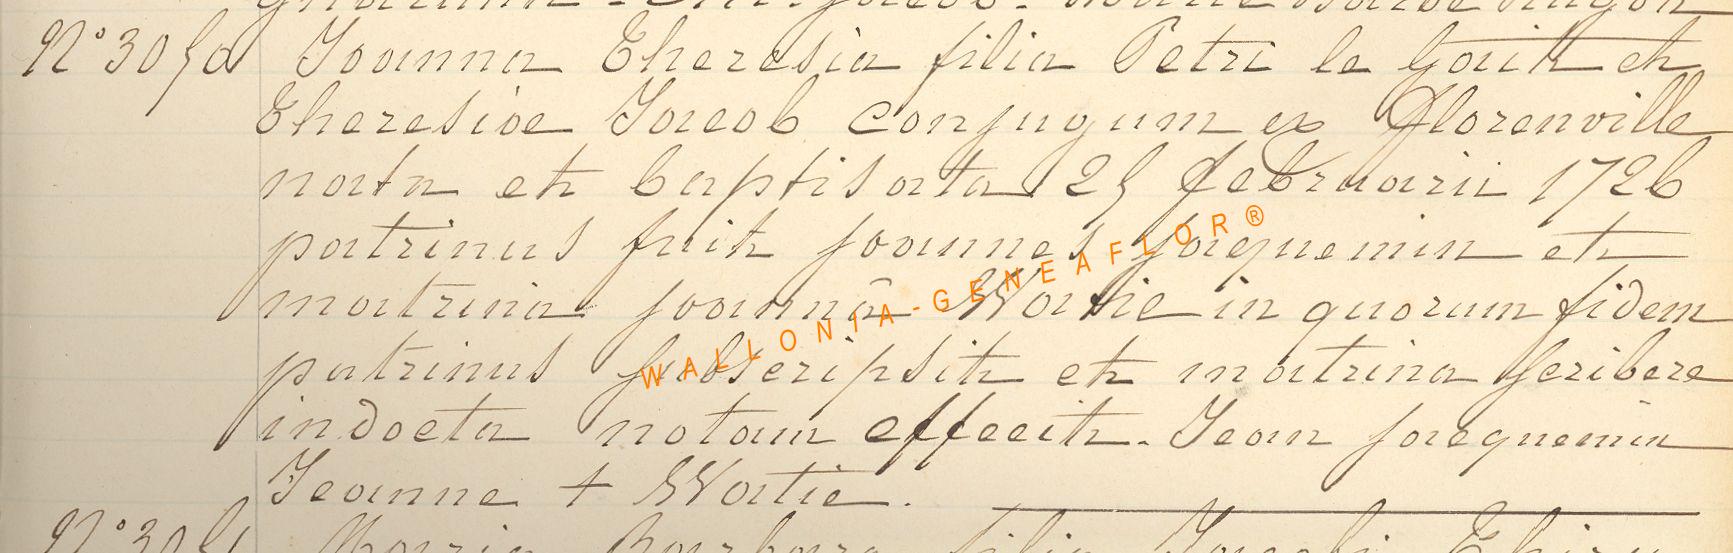 N° 3050 Joanna Theresia filia Petri le Goik et
Theresiae Jacob conjugum ex Florenville
nata et baptisata 25 februarii 1726
patrinus fuit joannes jacquemin et
matrina joannâ Watie in quorum fidem
patrinus subscripsit et matrina scribere
indocta notam effecit. Jean jacquemin
Jeanne + Watie.
WALLONIA-GENEAFLOR®
N° 3051 Maria Barbara filia